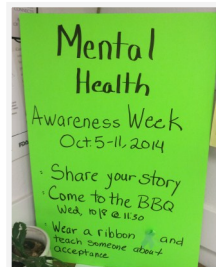 Mental
Health
Awareness Week
Oct. 5-11, 2014
Share your story
Come to the BBQ
Wed, 10/8 @ 11:30
Wear a ribbon and
teach someone about
acceptance